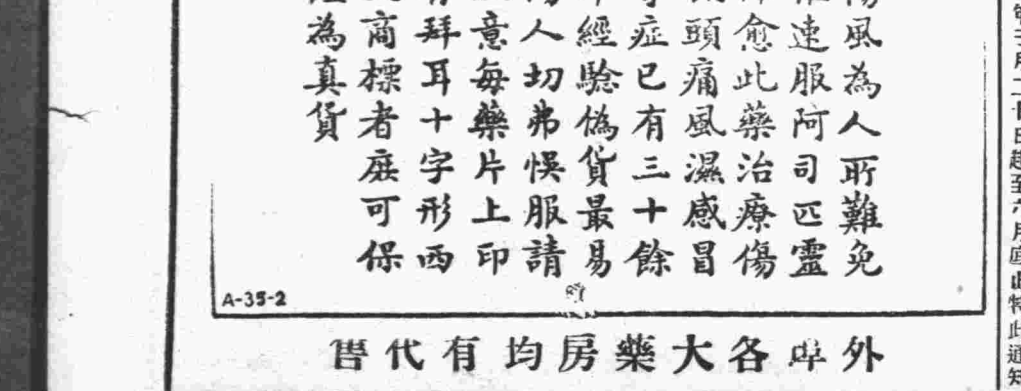 日起至六月底止特此通知
風為人所難免
速服阿司匹靈
愈此藥治療傷
頭痛風濕感冒
症已有三十餘
經驗偽貨最易
人切弗悞服請
意每藥片上印
拜耳十字形西
商標者庶可保
為真貨
A-35-2
外埠各大藥房均有代售